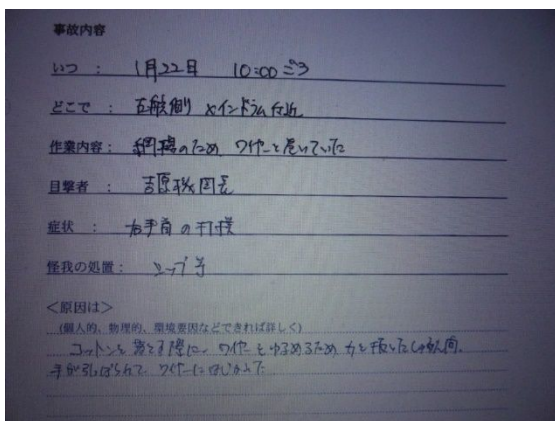 事故内容
いつ : 1月22日 10:00ごろ
どこで : 右舷側 メインドラム付近
作業内容: 網揚のため ワイヤーを巻いていた
目撃者 : 吉原機関長
症状 : 右手首の打撲
怪我の処置: シップ等
<原因は>
(個人的、物理的、環境要因などできれば詳しく)
コットンを落とす際に、ワイヤーをゆるめるため力を抜いたしゅん間、
手が引っぱられて ワイヤーにはじかれた